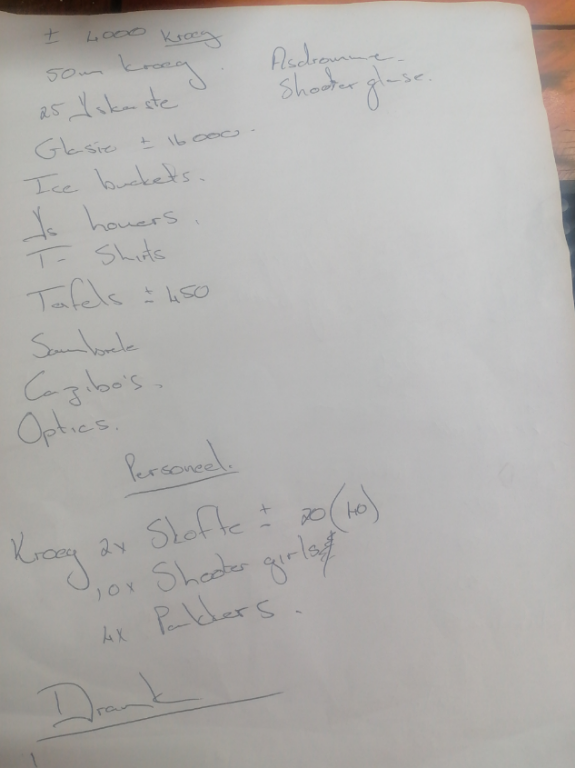 ± 4000 Kroeg
50m Kroeg.
Asdromme.
Shooter glase.
25 Yskaste
Glasie ± 16000.
Ice buckets.
Ys houers.
T- Shirts
Tafels ± 450
Sambrele
Cazibo's.
Optics.
Personeel.
Kroeg 2x Skofte ± 20 (40)
10x Shooter girls
4x Pakkers.
Drank